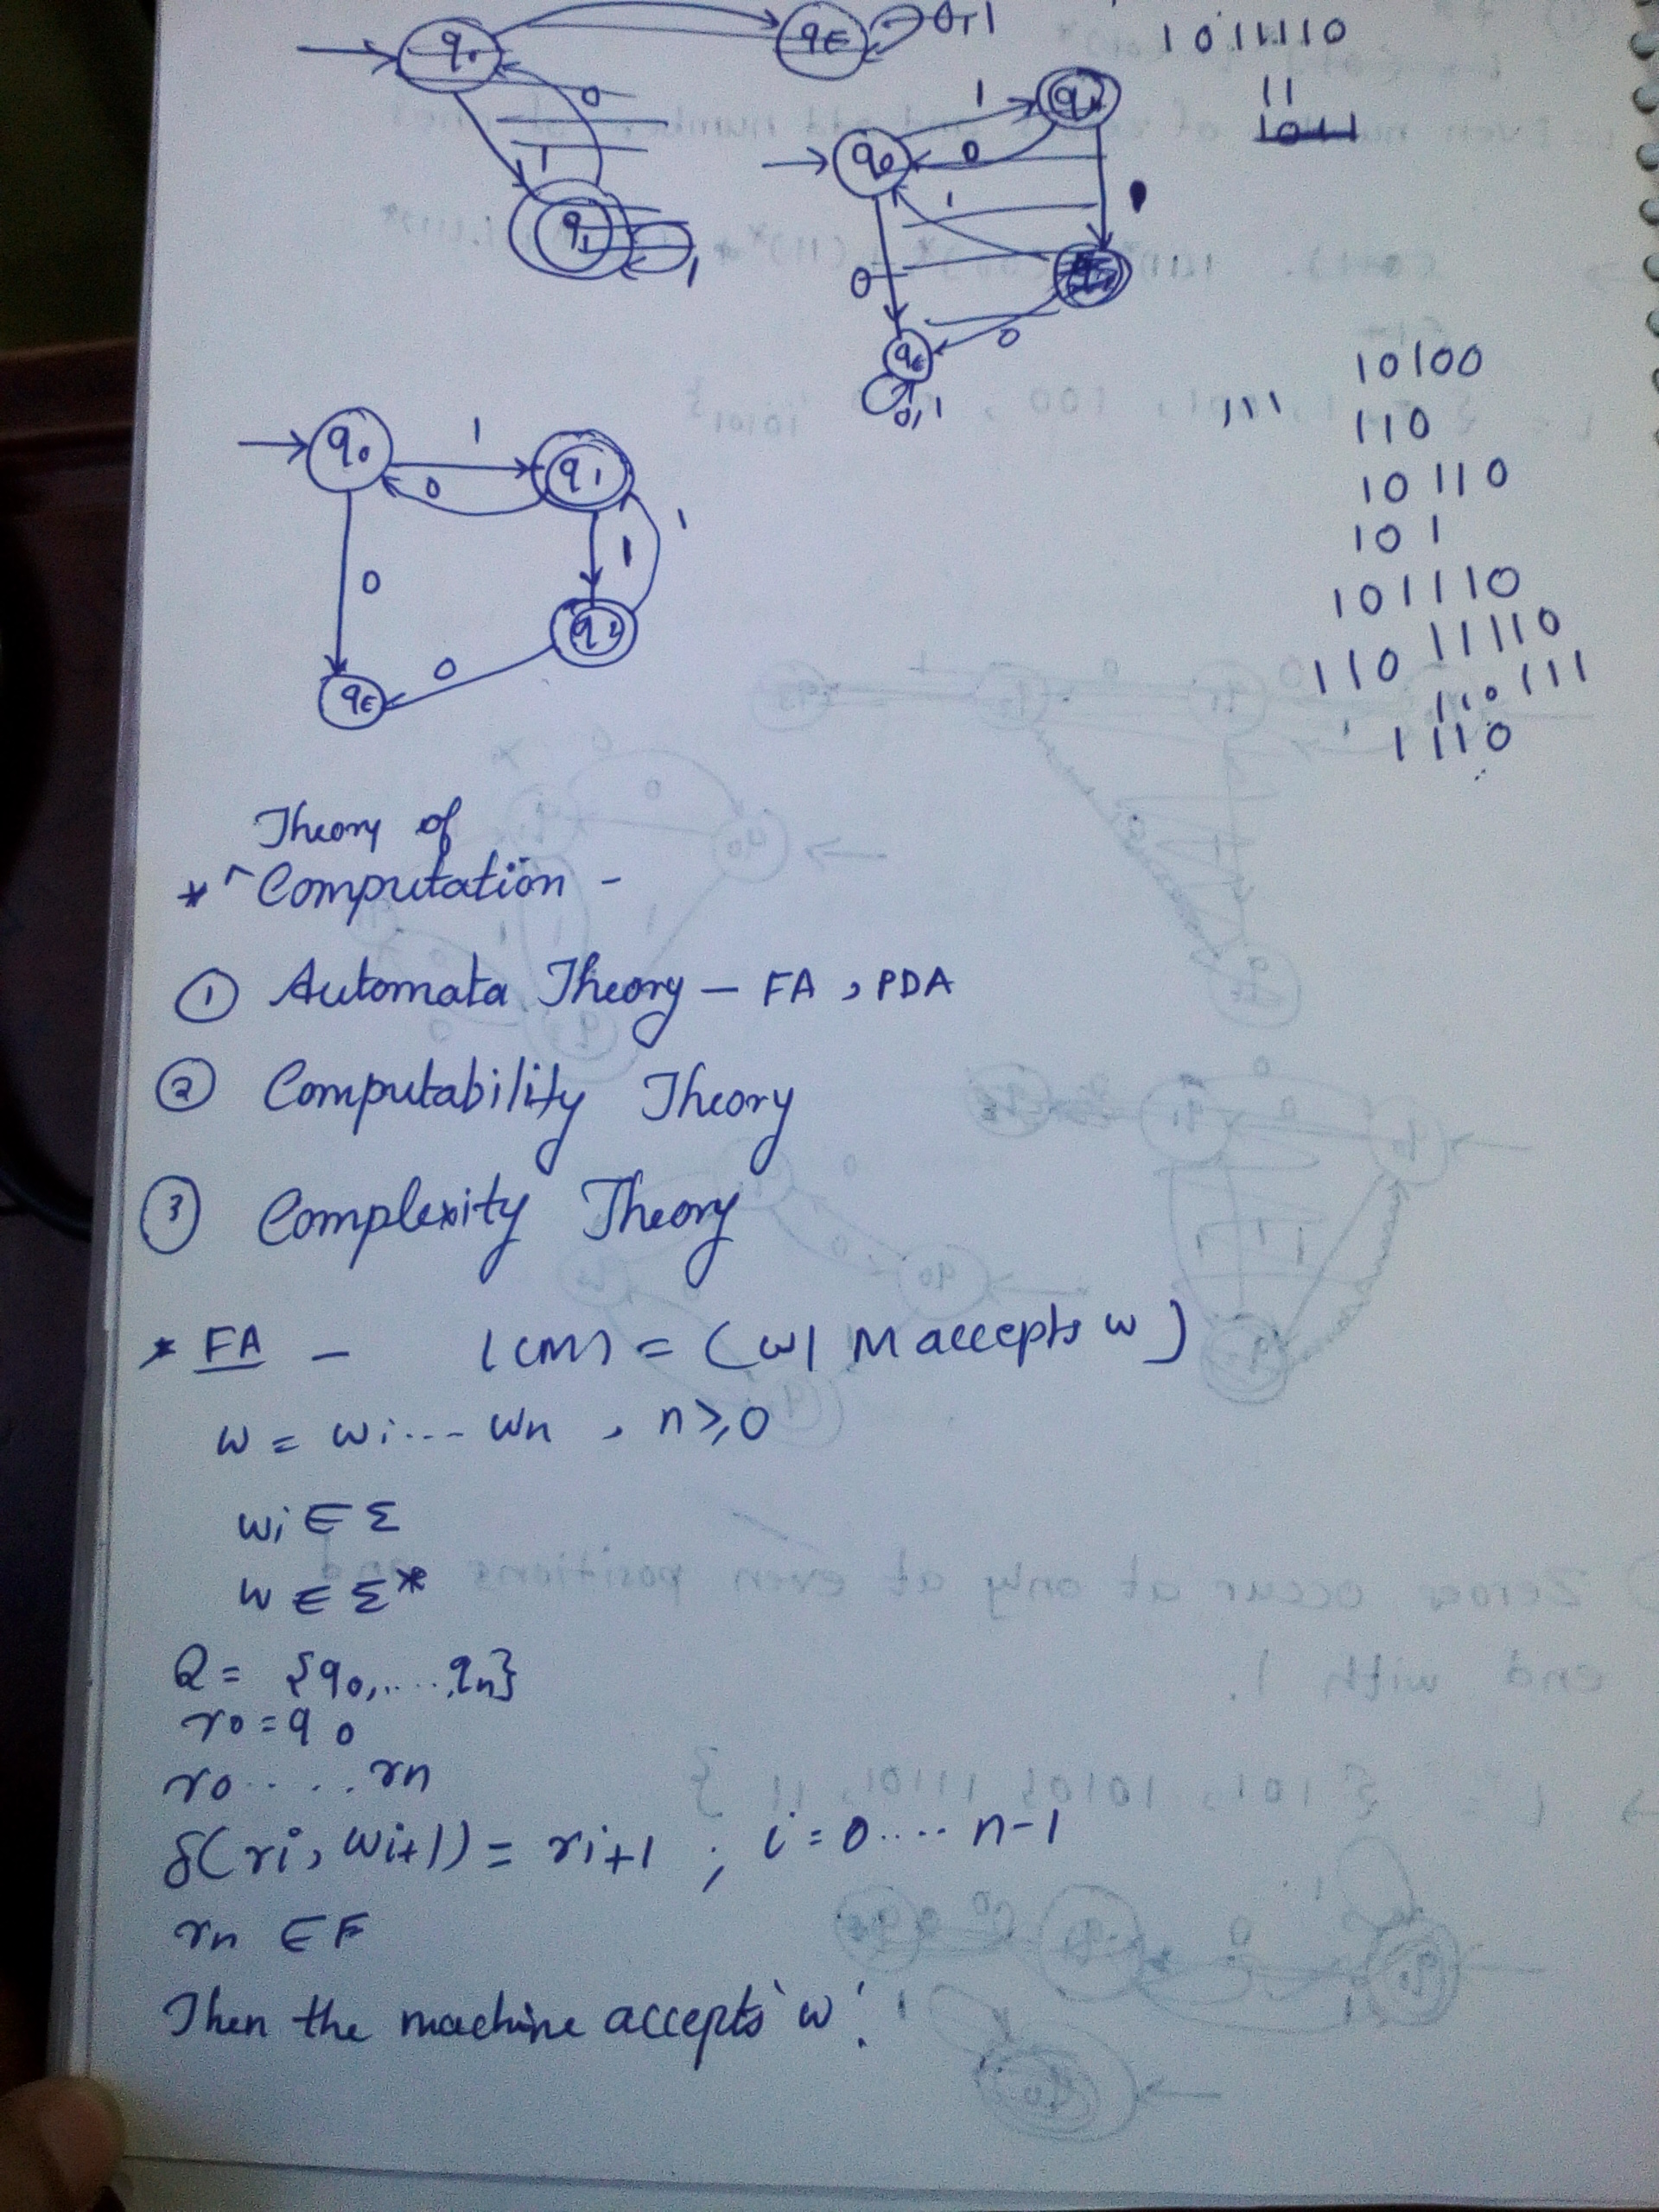 q0 qE 0,1
0
1
q1
1
1011110
11
1011
1 q1
q0 0
1
0
0
qE
0,1
10100
111 110
10110
101
101110
11110
110
110 111
1110
q0 1 q1
0
1
1
0
q2
0
qE
Theory of
* ^ Computation -
① Automata Theory - FA, PDA
② Computability Theory
③ Complexity Theory
* FA - L(M) = (w| M accepts w)
w = wi... wn, n≥0
wi ∈ Σ
w ∈ Σ*
Q = {q0,.....qn}
r0 = q0
r0.....rn
δ(ri, wi+1) = ri+1 ; i = 0.... n-1
rn ∈ F
Then the machine accepts 'w'.